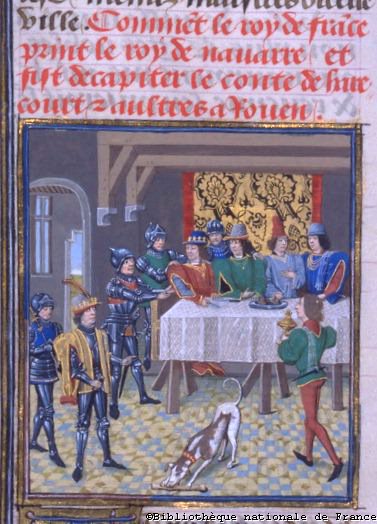 ville. Comment le roy de frāce
print le roy de nauarre et
fist decapiter le conte de hare
court ⁊ aultres a rouen.
©Bibliothèque nationale de France